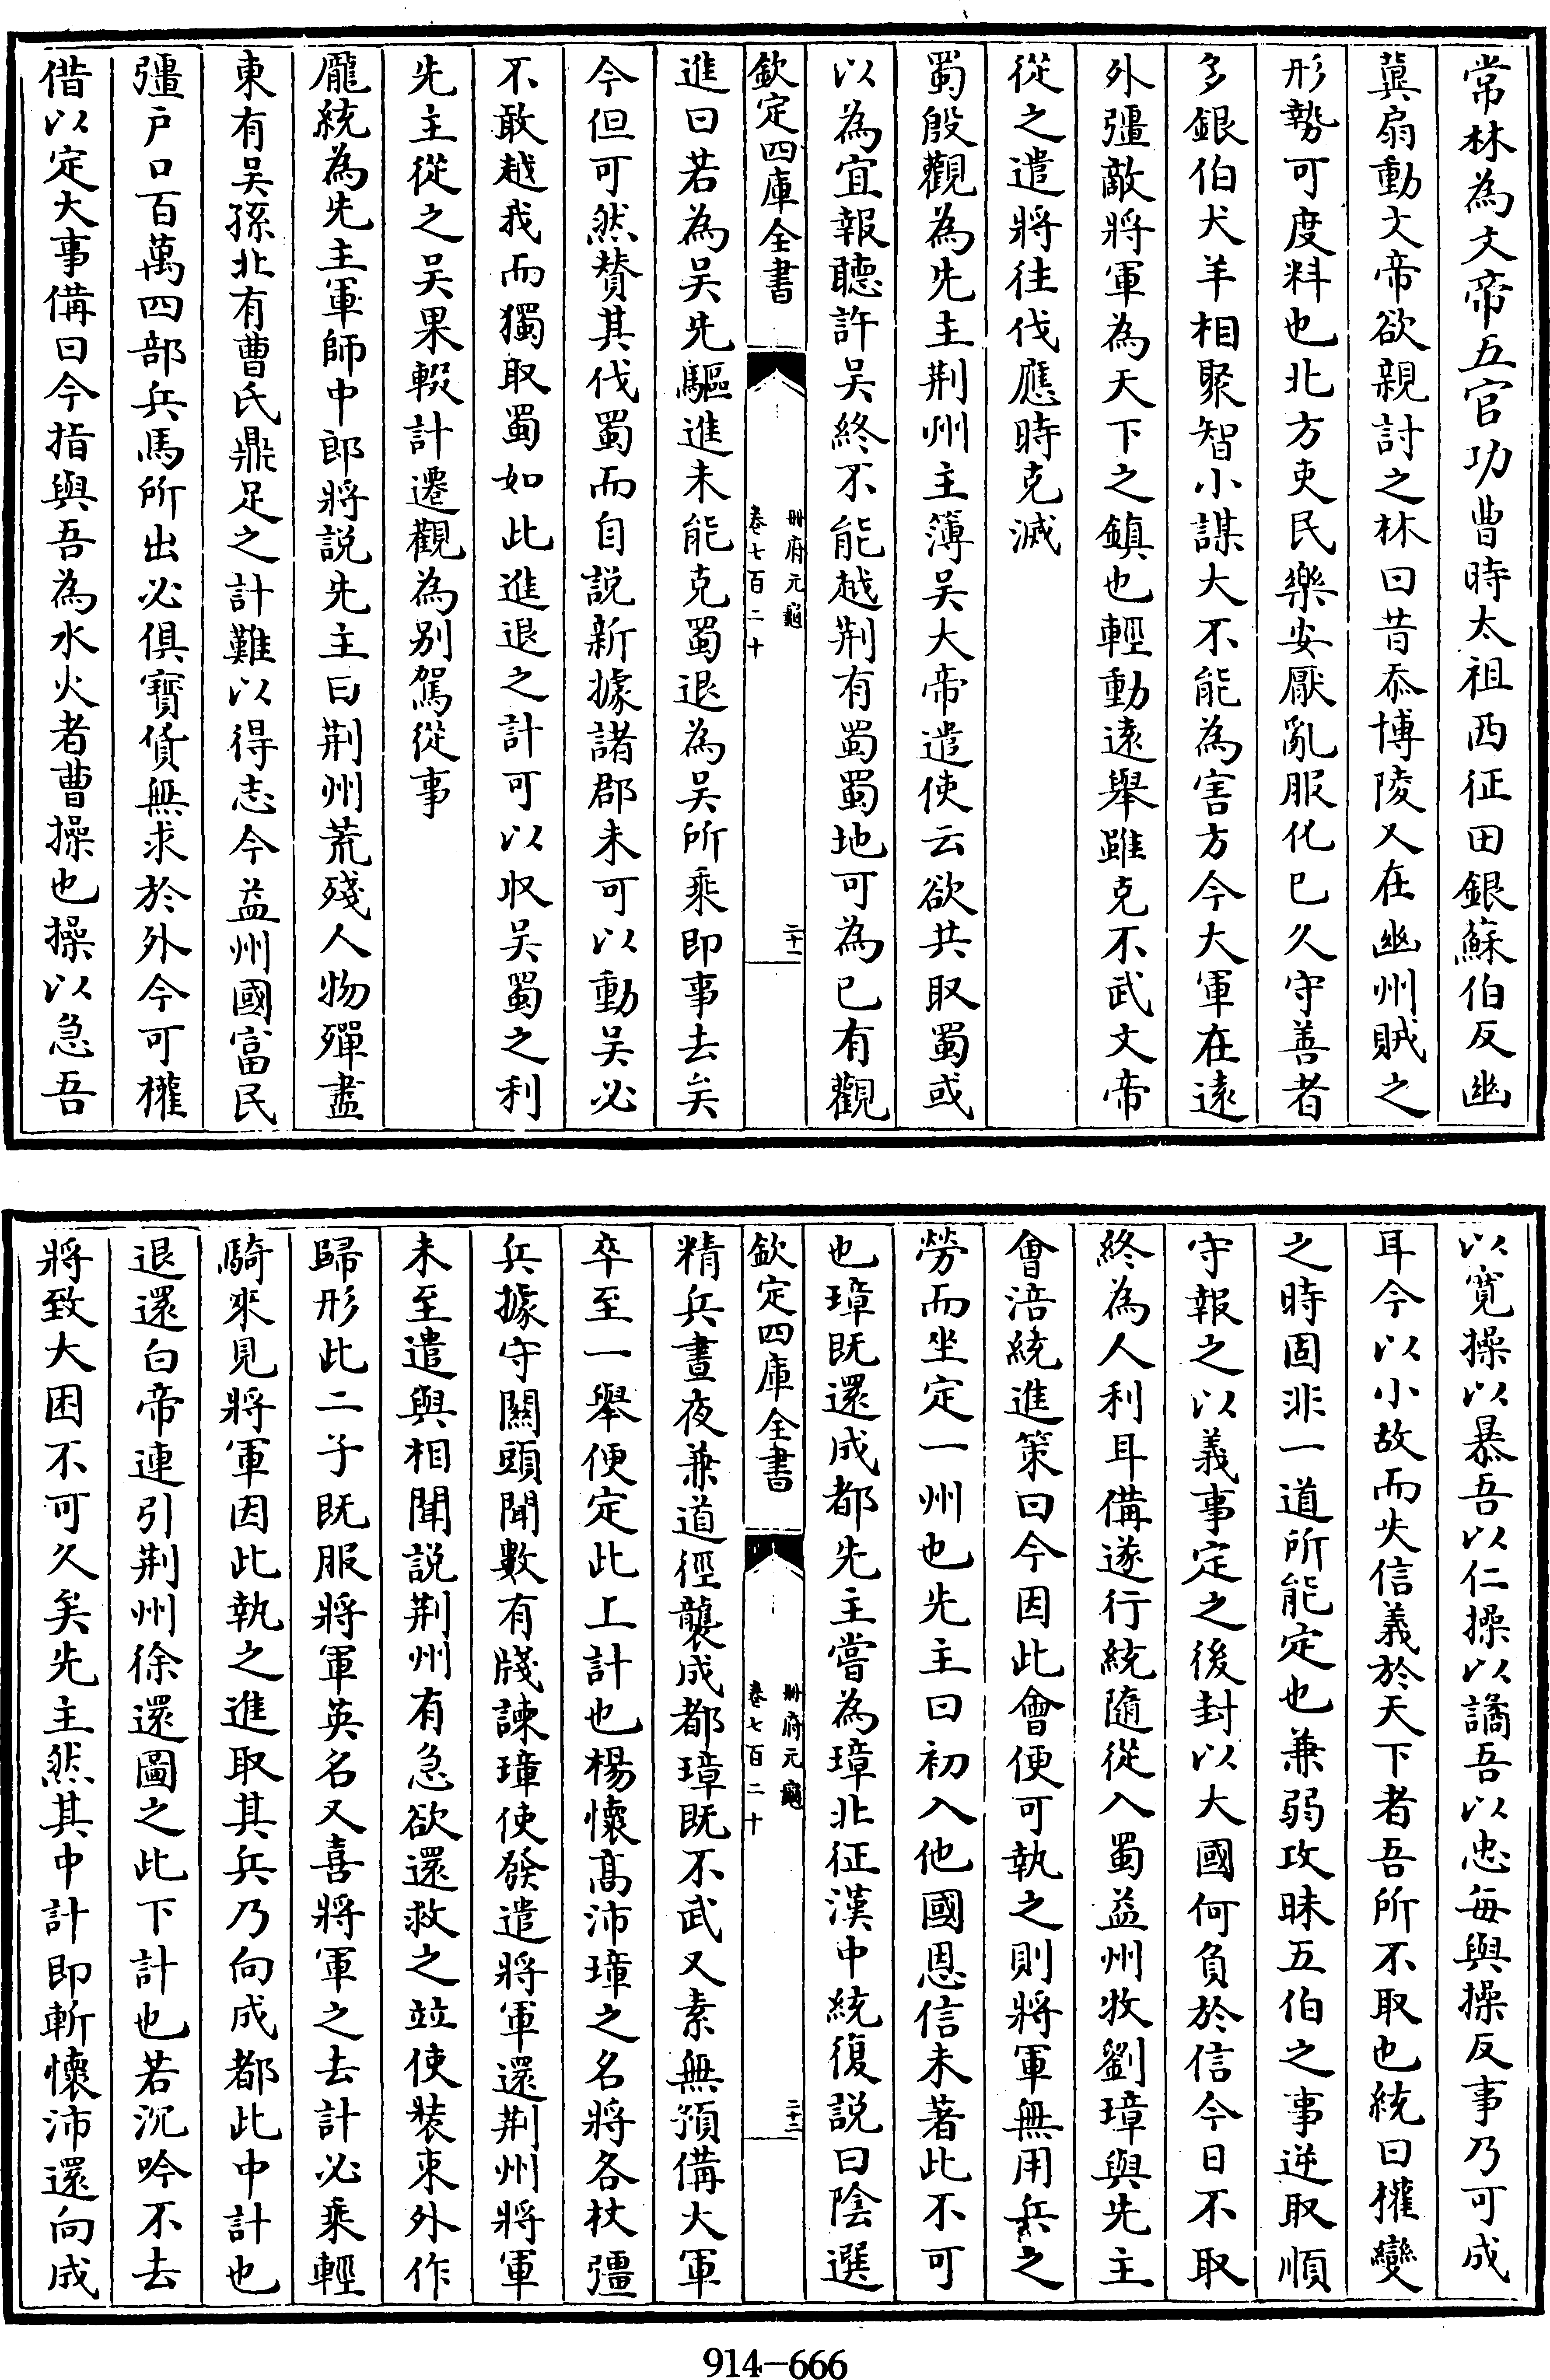 常林為文帝五官功曹時太祖西征田銀蘇伯反幽
冀扇動文帝欲親討之林曰昔忝博陵又在幽州賊之
形勢可度料也北方吏民樂安厭亂服化已久守善者
多銀伯犬羊相聚智小謀大不能為害方今大軍在遠
外彊敵將軍為天下之鎮也輕動遠舉雖克不武文帝
從之遣將往伐應時克滅
蜀殷觀為先主荆州主簿吳大帝遣使云欲共取蜀或
以為宜報聽許吳終不能越荆有蜀蜀地可為已有觀
欽定四庫全書
冊府元龜
卷七百二十
二十一
進曰若為吳先驅進未能克蜀退為吳所乘即事去矣
今但可然賛其伐蜀而自説新據諸郡未可以動吳必
不敢越我而獨取蜀如此進退之計可以收吳蜀之利
先主從之吳果輟計遷觀為别駕從事
龎統為先主軍師中郎將説先主曰荆州荒殘人物殫盡
東有吳孫北有曹氏鼎足之計難以得志今益州國富民
彊户口百萬四部兵馬所出必俱寳貨無求於外今可權
借以定大事備曰今指與吾為水火者曹操也操以急吾
以寛操以暴吾以仁操以譎吾以忠每與操反事乃可成
耳今以小故而失信義於天下者吾所不取也統曰權變
之時固非一道所能定也兼弱攻昧五伯之事逆取順
守報之以義事定之後封以大國何負於信今日不取
終為人利耳備遂行統隨從入蜀益州牧劉璋與先主
會涪統進策曰今因此會便可執之則將軍無用兵之
勞而坐定一州也先主曰初入他國恩信未著此不可
也璋既還成都先主嘗為璋北征漢中統復説曰陰選
欽定四庫全書
冊府元龜
卷七百二十
二十二
精兵晝夜兼道徑襲成都璋既不武又素無預備大軍
卒至一舉便定此上計也楊懷髙沛璋之名將各杖彊
兵據守關頭聞數有牋諫璋使發遣將軍還荆州將軍
未至遣與相聞説荆州有急欲還救之竝使裝束外作
歸形此二子既服將軍英名又喜將軍之去計必乘輕
騎來見將軍因此執之進取其兵乃向成都此中計也
退還白帝連引荆州徐還圖之此下計也若沉吟不去
將致大困不可久矣先主然其中計即斬懷沛還向成
914-666